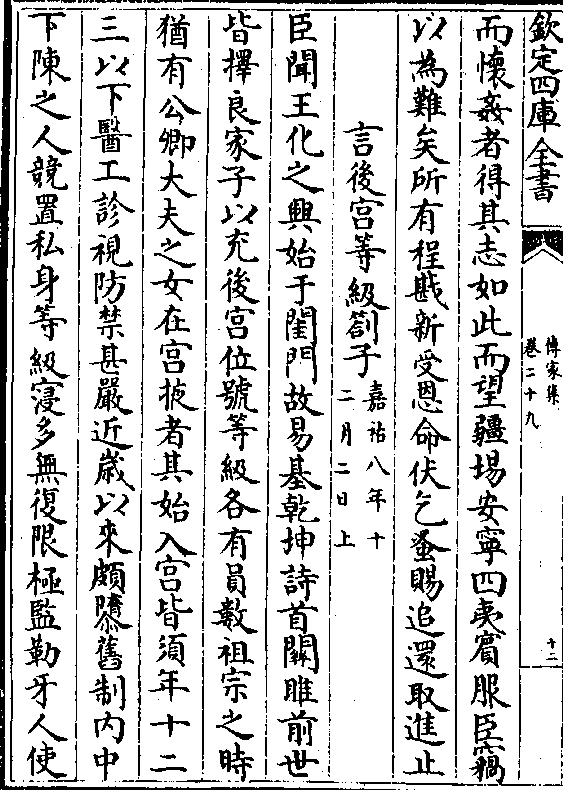 欽定四庫全書
傳家集
卷二十九
十二
而懷姦者得其志如此而望疆埸安寧四夷賓服臣竊
以為難矣所有程戡新受恩命伏乞蚤賜追還取進止
言後宫等級劄子
嘉祐八年十
二月二日上
臣聞王化之興始于閨門故易基乾坤詩首關雎前世
皆擇良家子以充後宫位號等級各有員數祖宗之時
猶有公卿大夫之女在宫掖者其始入宫皆須年十二
三以下醫工診視防禁甚嚴近歲以來頗隳舊制内中
下陳之人競置私身等級寖多無復限極監勒牙人使